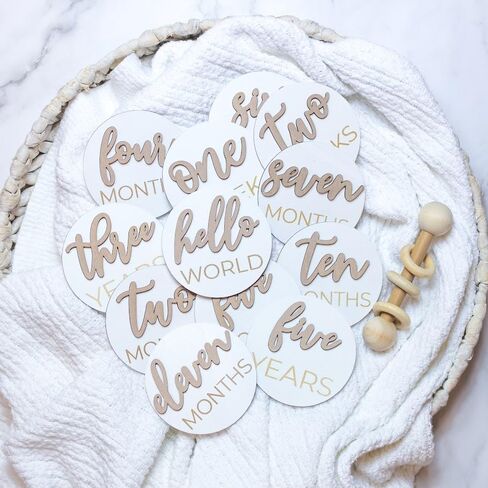 six
two
KS
four
MONTH
one
EK
seven
MONTHS
three
YEARS
hello
WORLD
ten
MONTHS
two
MO
five
five
YEARS
eleven
MONTHS